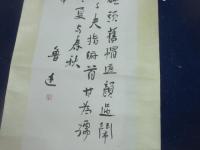 頭舊帽遮顏過鬧
夫指俯首甘為孺
夏与春秋
魯迅